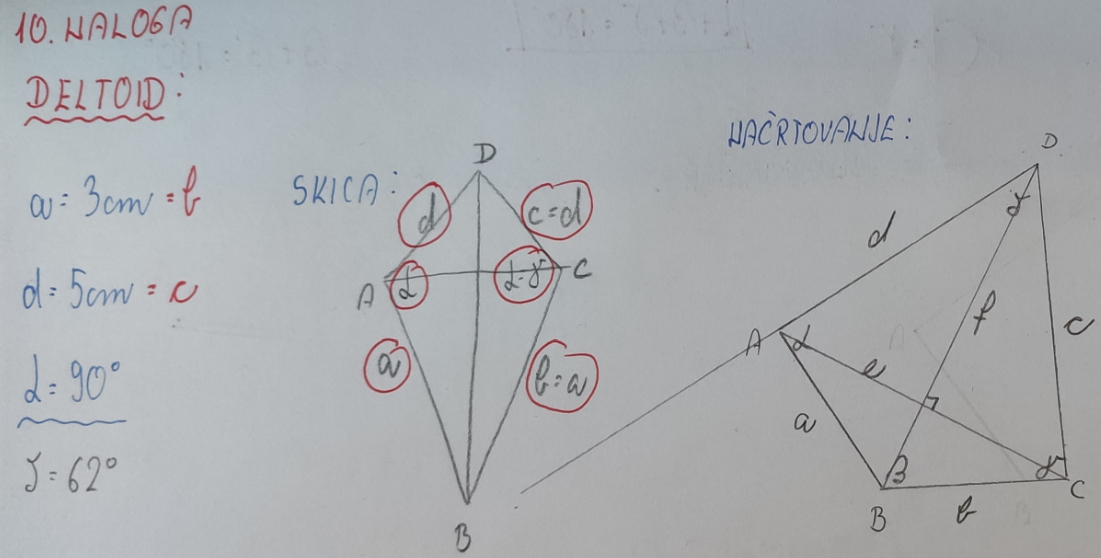 10. NALOGA
DELTOID:
a = 3cm = b
d = 5cm = c
α = 90°
δ = 62°
SKICA:
D
d
c=d
A
α
α=γ
C
a
b=a
B
NAČRTOVANJE:
D
δ
d
f
c
A
α
e
a
β
γ
B
b
C